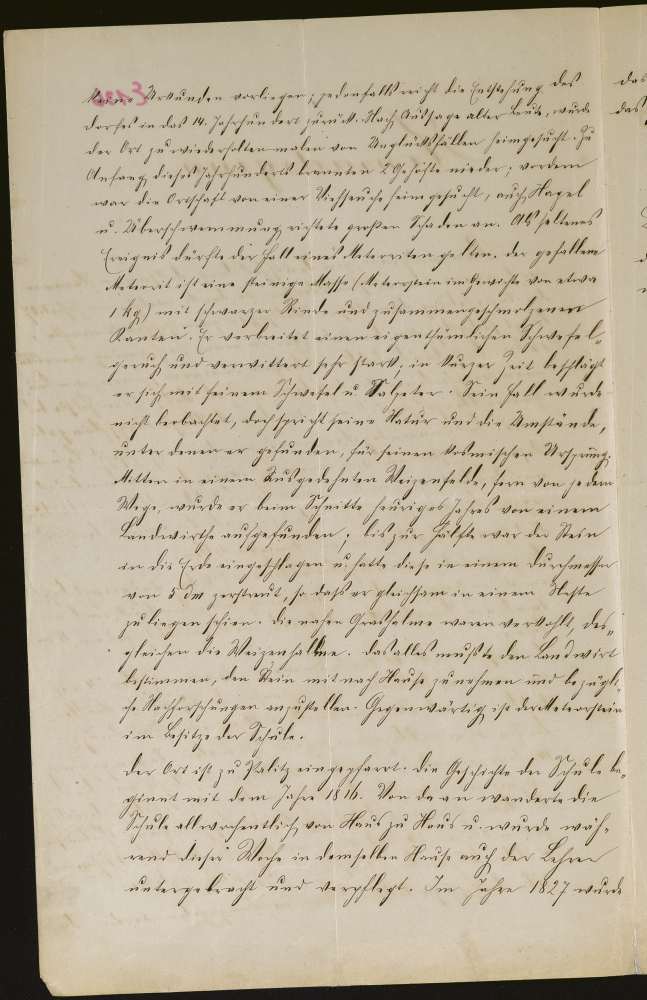 keine Urkunden vorliegen; jedenfalls reicht die Entstehung des
Dorfes in das 14. Jahrhundert zurück. Nach Aussage alter Leute, wurde
der Ort zu wiederholtenmalen von Unglücksfällen heimgesucht. Zu
Anfang dieses Jahrhunderts brannten 2 Gehöfte nieder; vordem
war die Ortschaft von einer Viehseuche heimgesucht, auch Hagel
u. Überschwemmung richtete großen Schaden an. Als seltenes
Ereignis dürfte der Fall eines Meteoriten gelten. Der gefallene
Meteorit ist eine steinige Masse (Meteorstein im Gewichte von etwa
1 kg) mit schwarzer Rinde und zusammengeschmolzenen
Kanten. Er verbreitet einen eigenthümlichen Schwefel-
geruch und verwittert sehr stark; in kurzer Zeit beschlägt
er sich mit feinem Schwefel u. Salpeter. Sein Fall wurde
nicht beobachtet, doch spricht seine Natur und die Umstände,
unter denen er gefunden, für seinen kosmischen Ursprung.
Mitten in einem ausgedehnten Weizenfelde, fern von jedem
Wege, wurde er beim Schnitte heuriges Jahres von einem
Landwirthe aufgefunden; bis zur Hälfte war der Stein
in die Erde eingeschlagen u. hatte diese in einem Durchmesser
von 5 dm zerstreut, so daß er gleichsam in einem Neste
zu liegen schien. Die nahen Grashalme waren verkohlt, des-
gleichen die Weizenhalme. Das alles mußte den Landwirt
bestimmen, den Stein mit nach Hause zu nehmen und bezügli-
che Nachforschungen anzustellen. Gegenwärtig ist der Meteorstein
im Besitze der Schule.
Der Ort ist zu Palitz eingepfarrt. Die Geschichte der Schule be-
ginnt mit dem Jahre 1816. Von da an wanderte die
Schule allwochentlich von Haus zu Haus u. wurde wäh-
rend dieser Woche in demselben Hause auch der Lehrer
untergebracht und verpflegt. Im Jahre 1827 wurde
das
das